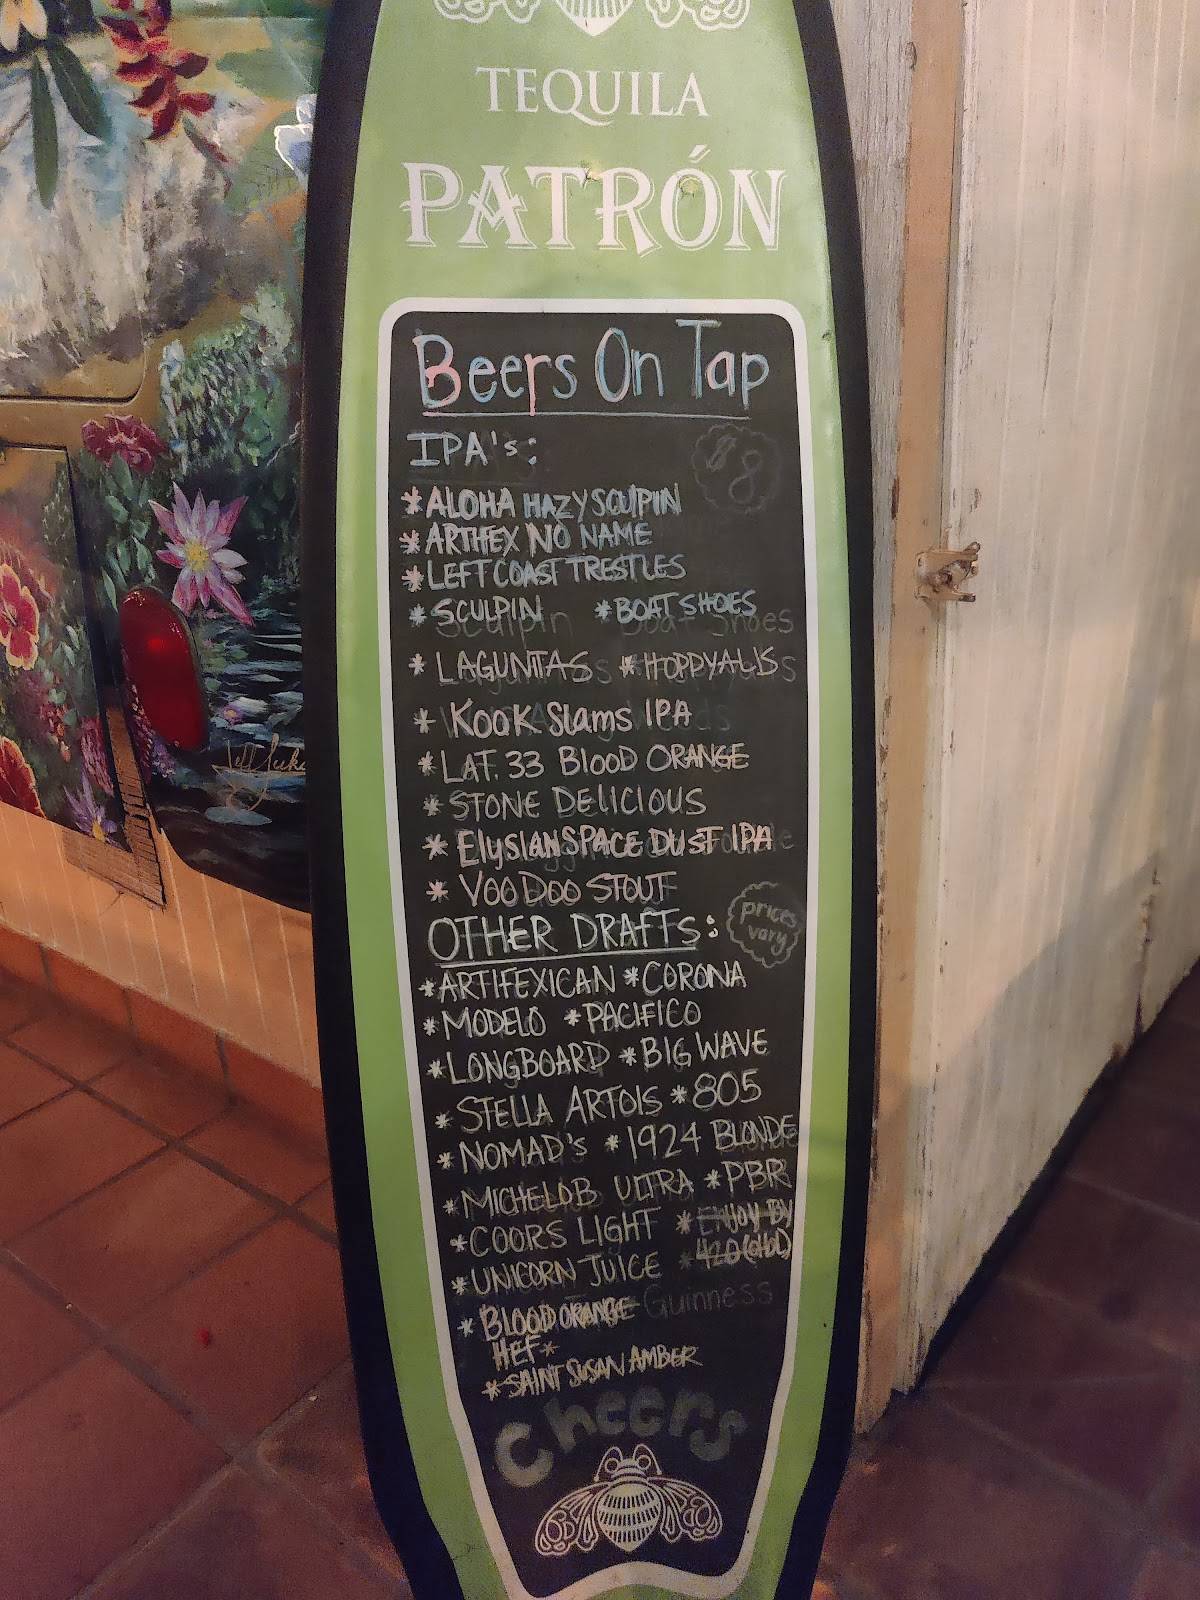 TEQUILA
PATRÓN
Beers On Tap
IPA's:
$8
*ALOHA HAZY SCULPIN
*ARTIFEX NO NAME
*LEFT COAST TRESTLES
*SCULPIN *BOAT SHOES
*LAGUNITAS *HOPPYALIS
*KOOK SLAMS IPA
*LAT. 33 BLOOD ORANGE
*STONE DELICIOUS
*ELYSIAN SPACE DUST IPA
*VOODOO STOUT
OTHER DRAFTS:
prices
vary
*ARTIFEXICAN *CORONA
*MODELO *PACIFICO
*LONGBOARD *BIG WAVE
*STELLA ARTOIS *805
*NOMAD'S *1924 BLONDE
*MICHELOB ULTRA *PBR
*COORS LIGHT *ENJOY BY
*UNICORN JUICE 420
*BLOOD ORANGE Guinness
HEF*
*SAINT SUSAN AMBER
Cheers